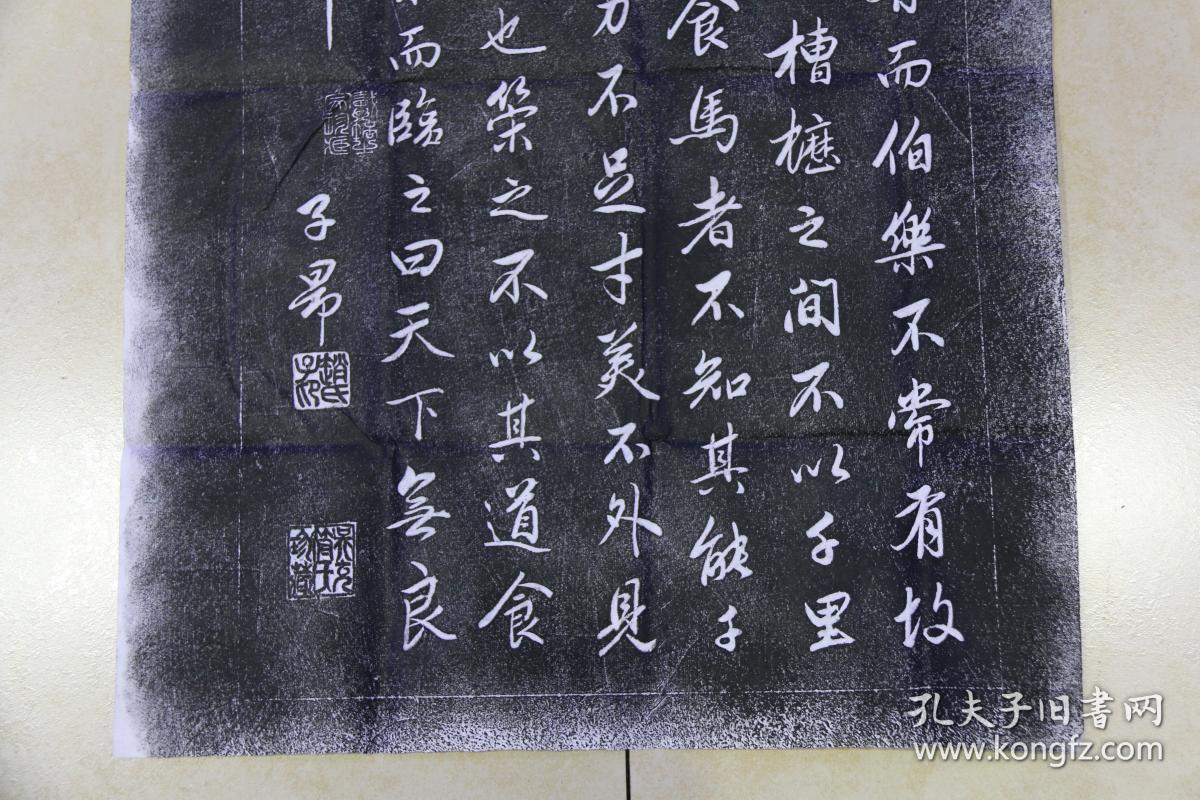 而伯樂不常有故
槽櫪之間不以千里
食馬者不知其能千
不足才美不外見
也策之不以其道食
而臨之曰天下無良
子昂
趙氏子昂
孔夫子旧書网
www.kongfz.com